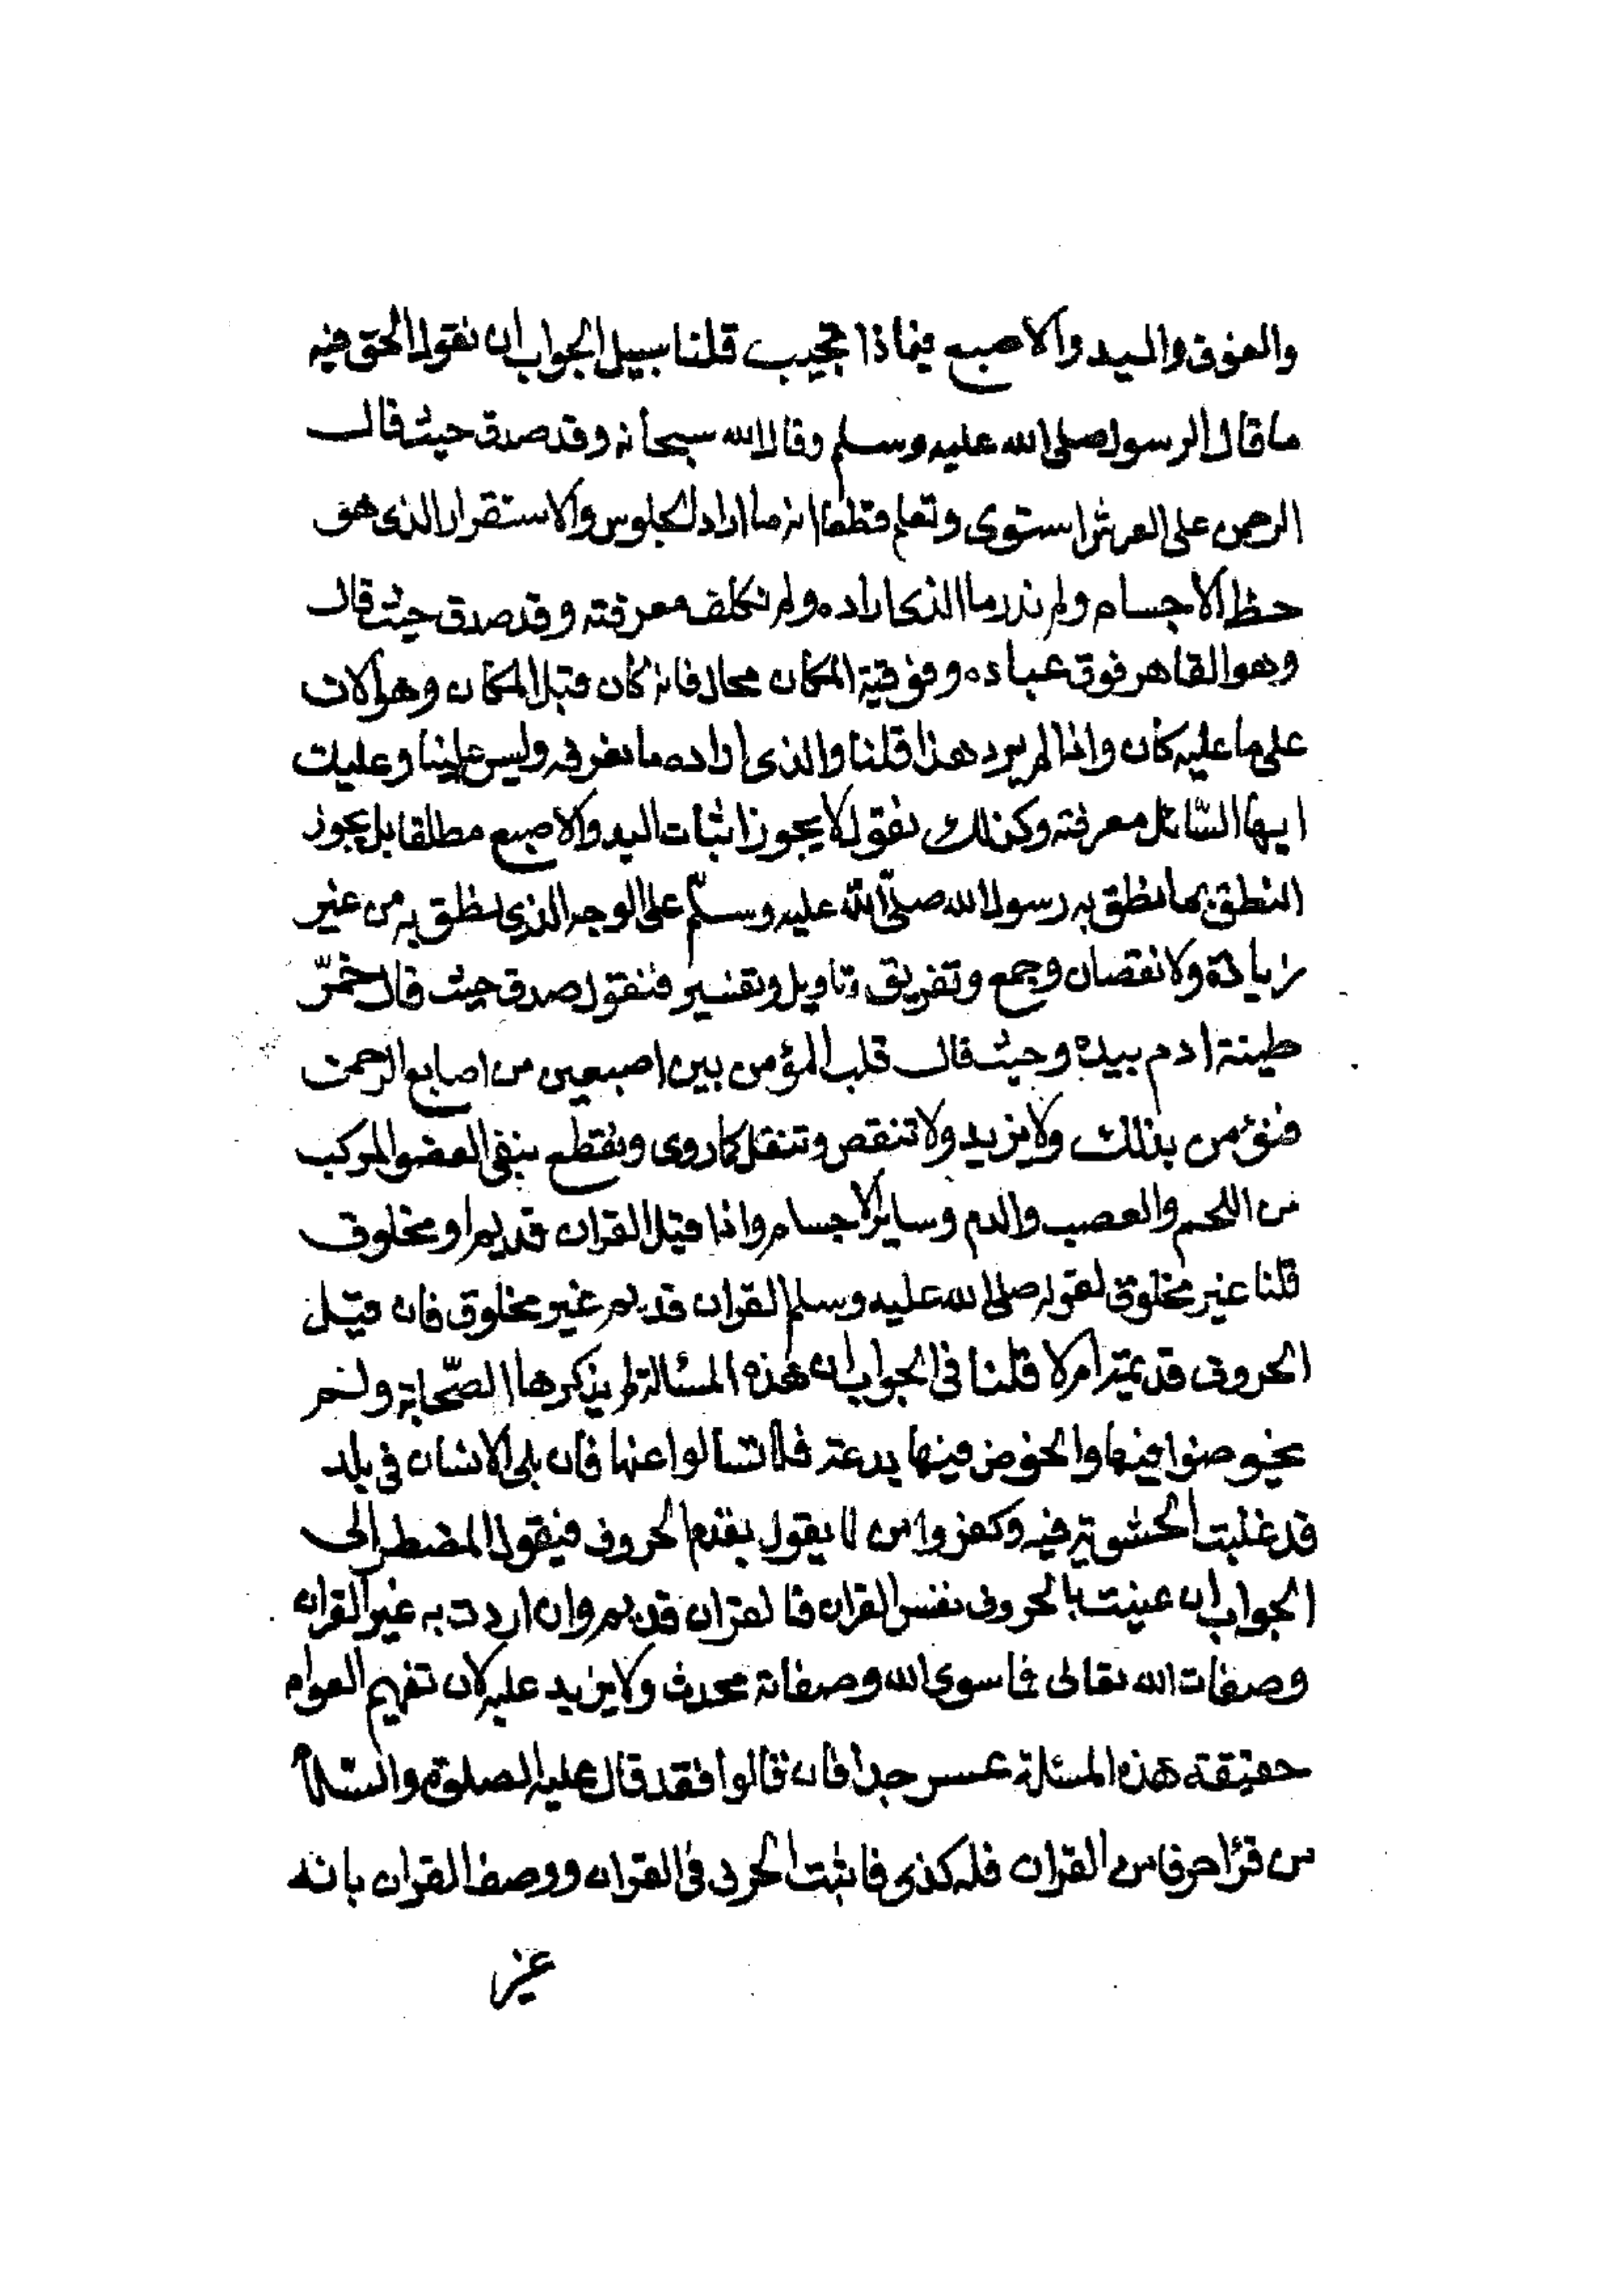 والفوق واليد والاصبع فبماذا تجيب قلنا سبيل الجواب ان نقول الحق فيه
ما قال الرسول صلى الله عليه وسلم وقال الله سبحانه وقد صدق حيث قال
الرحمن على العرش استوى وتعلم قطعا انه ما اراد الجلوس والاستقرار الذى هو
حظ الاجسام ولم ندر ما الذى اراده ولم نكلف معرفته وقد صدق حيث قال
وهو القاهر فوق عباده وفوقية المكان محال فانه كان قبل المكان وهو الان
على ما عليه كان واذا لم يرد هذا قلنا والذى اراده ما نعرفه وليس علينا وعليك
ايها السّائل معرفته وكذلك نقول لا يجوز اثبات اليد والاصبع مطلقا بل يجوز
النطق بما نطق به رسول الله صلّى الله عليه وسلّم على الوجه الذى نطق به من غير
زيادة ولا نقصان وجمع وتفريق وتاويل وتفسير فنقول صدق حيث قال خمّر
طينة ادم بيده وحيث قال قلب المؤمن بين اصبعين من اصابع الرحمن
فنؤمن بذلك ولا يزيد ولا تنقص وتنقل كما روى ونقطع بنفى العضو المركب
من اللحم والعصب والدم وساير الاجسام واذا قيل القران قديم او مخلوق
قلنا غير مخلوق لقوله صلى الله عليه وسلم القران قديم غير مخلوق فان قيل
الحروف قديمة ام لا قلنا فى الجواب ان هذه المسئالة لم يذكرها الصّحابة ولم
يخوضوا فيها والخوض فيها بدعة فلا تسالوا عنها فان بلى الانسان فى بلد
قد غلبت الحشوية فيه وكفروا من لا يقول بقدم الحروف فيقول المضطر الى
الجواب ان عنيت بالحروف نفس القران فالقران قديم وان اردت به غير القران
وصفات الله تعالى فما سوى الله وصفاته محدث ولا يزيد عليه لان تفهيم العوام
حقيقة هذه المسئلة عسر جدا فان قالوا فقد قال عليه الصلوة والسّلام
من قرا حرفا من القران فله كذى فاثبت الحرف فى القران ووصف القران بانه
غير